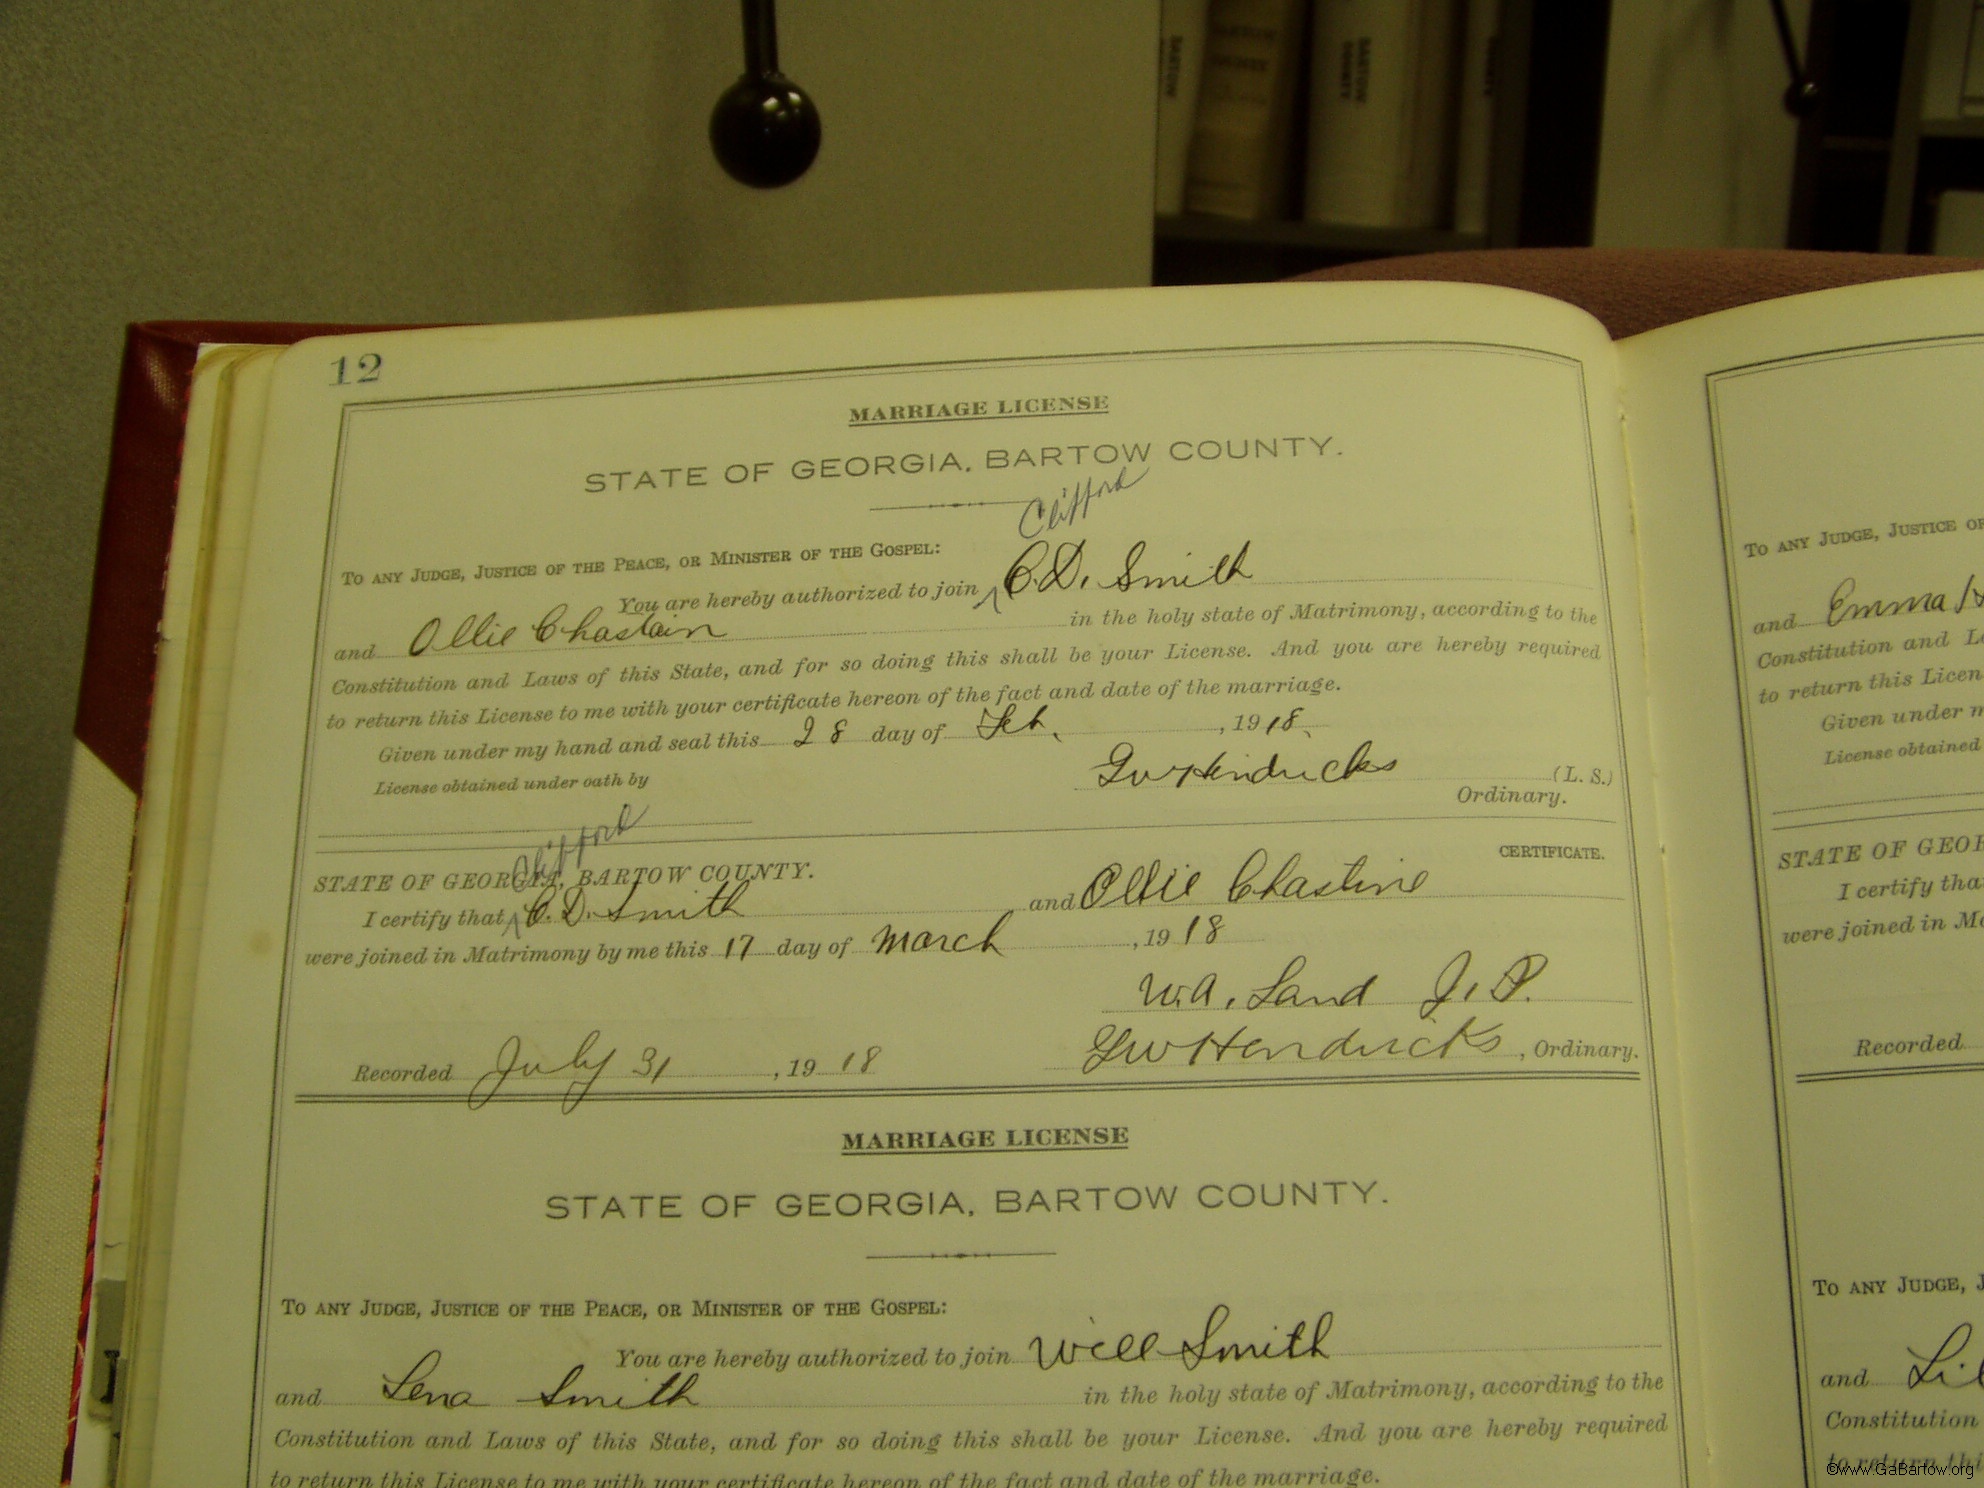 BARTOW
BARTOW
COUNTY
12
MARRIAGE LICENSE
STATE OF GEORGIA, BARTOW COUNTY.
Clifford
TO ANY JUDGE, JUSTICE OF THE PEACE, OR MINISTER OF THE GOSPEL:
You are hereby authorized to join C.D. Smith
and Ollie Chastain in the holy state of Matrimony, according to the
Constitution and Laws of this State, and for so doing this shall be your License. And you are hereby required
to return this License to me with your certificate hereon of the fact and date of the marriage.
Given under my hand and seal this 28 day of Feb. , 1918.
GW Hendricks (L. S.)
License obtained under oath by
Ordinary.
Clifford
CERTIFICATE.
STATE OF GEORGIA, BARTOW COUNTY.
I certify that C. D. Smith and Ollie Chastine
were joined in Matrimony by me this 17 day of March , 1918
W.A. Land J.P.
Recorded July 31 , 1918 GW Hendricks , Ordinary.
MARRIAGE LICENSE
STATE OF GEORGIA, BARTOW COUNTY.
TO ANY JUDGE, JUSTICE OF THE PEACE, OR MINISTER OF THE GOSPEL:
You are hereby authorized to join Will Smith
and Lena Smith in the holy state of Matrimony, according to the
Constitution and Laws of this State, and for so doing this shall be your License. And you are hereby required
to return this License to me with your certificate hereon of the fact and date of the marriage.
TO ANY JUDGE, JUSTICE OF
and Emma
Constitution and
to return this Licen
Given under m
License obtained
STATE OF GEOR
I certify tha
were joined in Ma
Recorded
TO ANY JUDGE, J
and Lil
Constitution
to return thi
©www.GaBartow.org